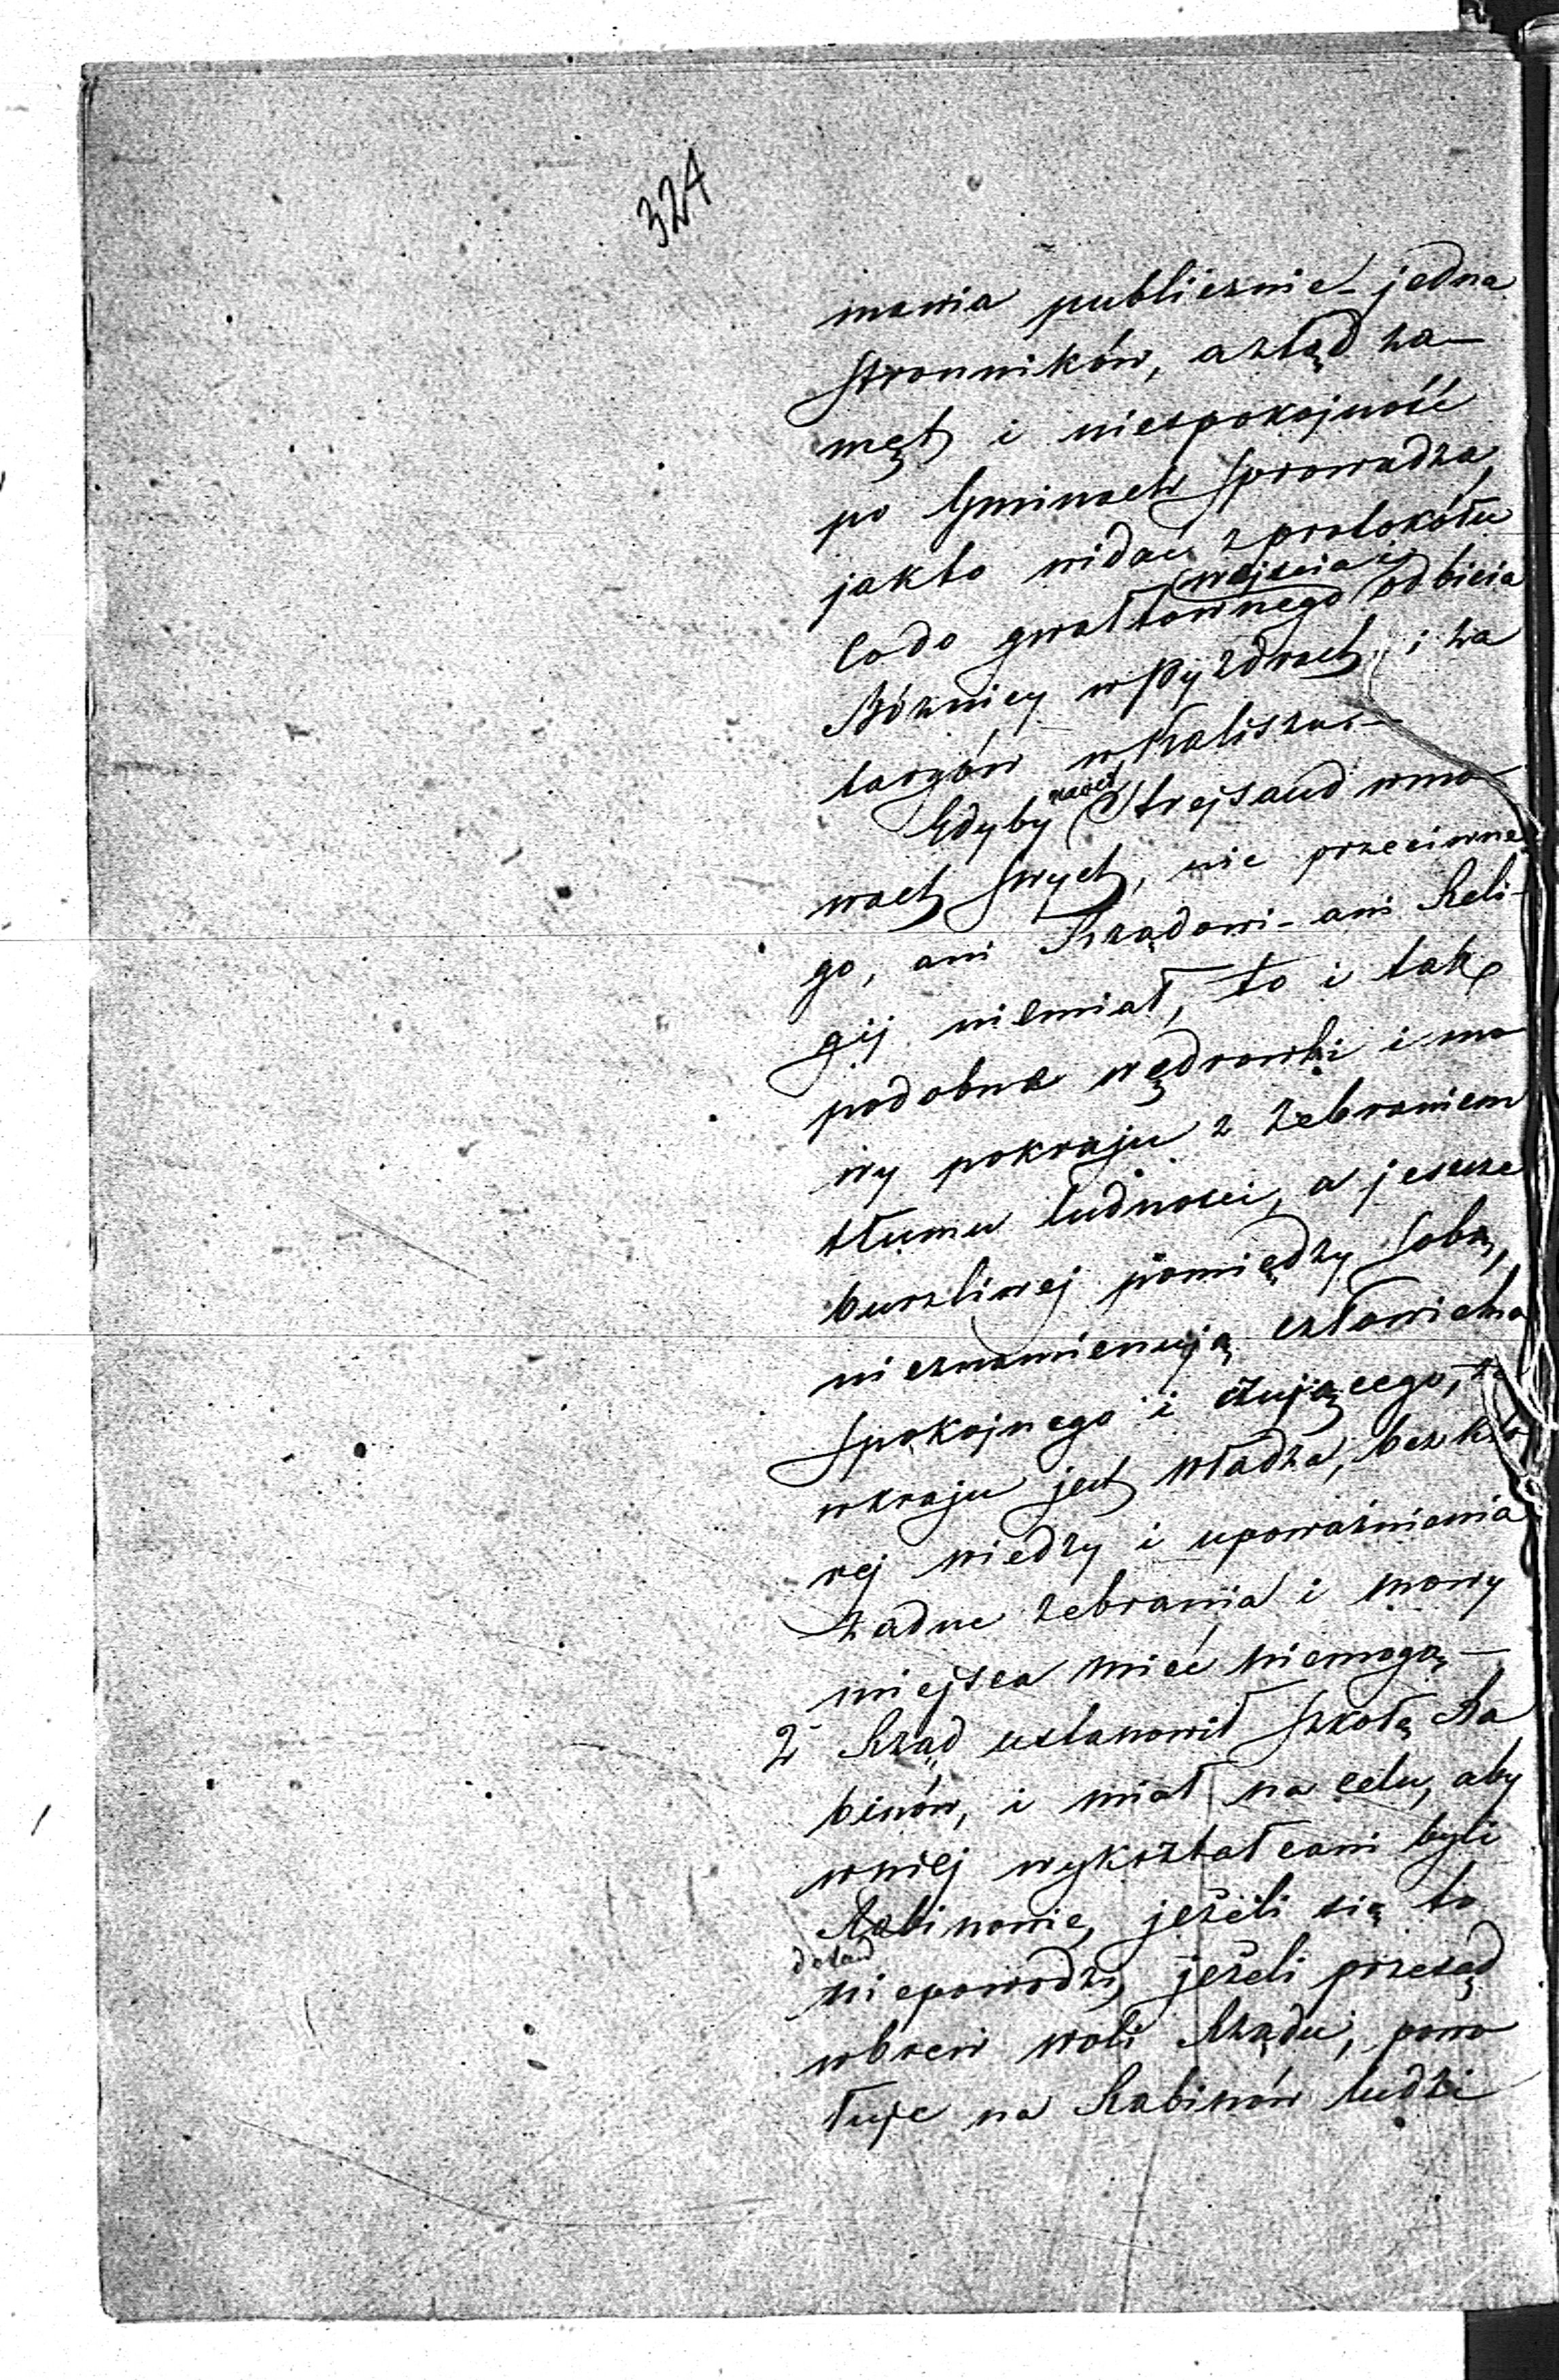 324
mawia publicznie jedna
stronników, a ztąd za-
męt i niespokojność
po Gminach sprowadza,
jakto widać z protokółu
wejscia i
Codo gwałtownego odbicia
Bóżnicy w Pyzdrach i za
targów w Kaliszu. —
nawet
Gdyby Strejsand wmo
wach swych, nic przeciwne
go, ani Rządowi - ani Reli-
gij niemiał, to i tak
podobne wędrowki i mo
wy pokraju z zebraniem
tłumu ludności, a jeszcze
burzliwej pomiędzy sobą,
nieznamienują człowieka
spokojnego i czującego, że
wkraju jest władza, bez któ
rej wiedzy i upoważnienia
żadne zebrania i mowy
miejsca mieć niemogą —
2 Rząd ustanowił szkołę Ra
binów, i miał na celu, aby
wniej wykształcani byli
Rabinowie, jeżeli się to
dotąd
niepowodzi, jeżeli przesąd
wbrew woli Rządu, powo
łuje na Rabinów ludzi